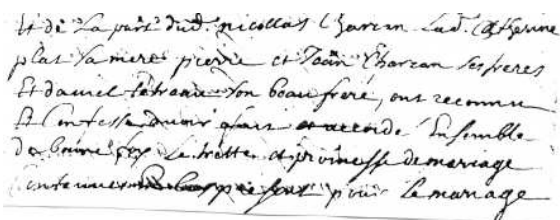 Et de La part dud. nicollas Charean Lad. Catherine
plat sa mere pierre et Jean Charean ses freres
Et daniel son beau frere, ont reconnu
Et Confesse avoir fait et accordé Ensemble
de bonne foy Le traitte et promesse de mariage
pour Le mariage